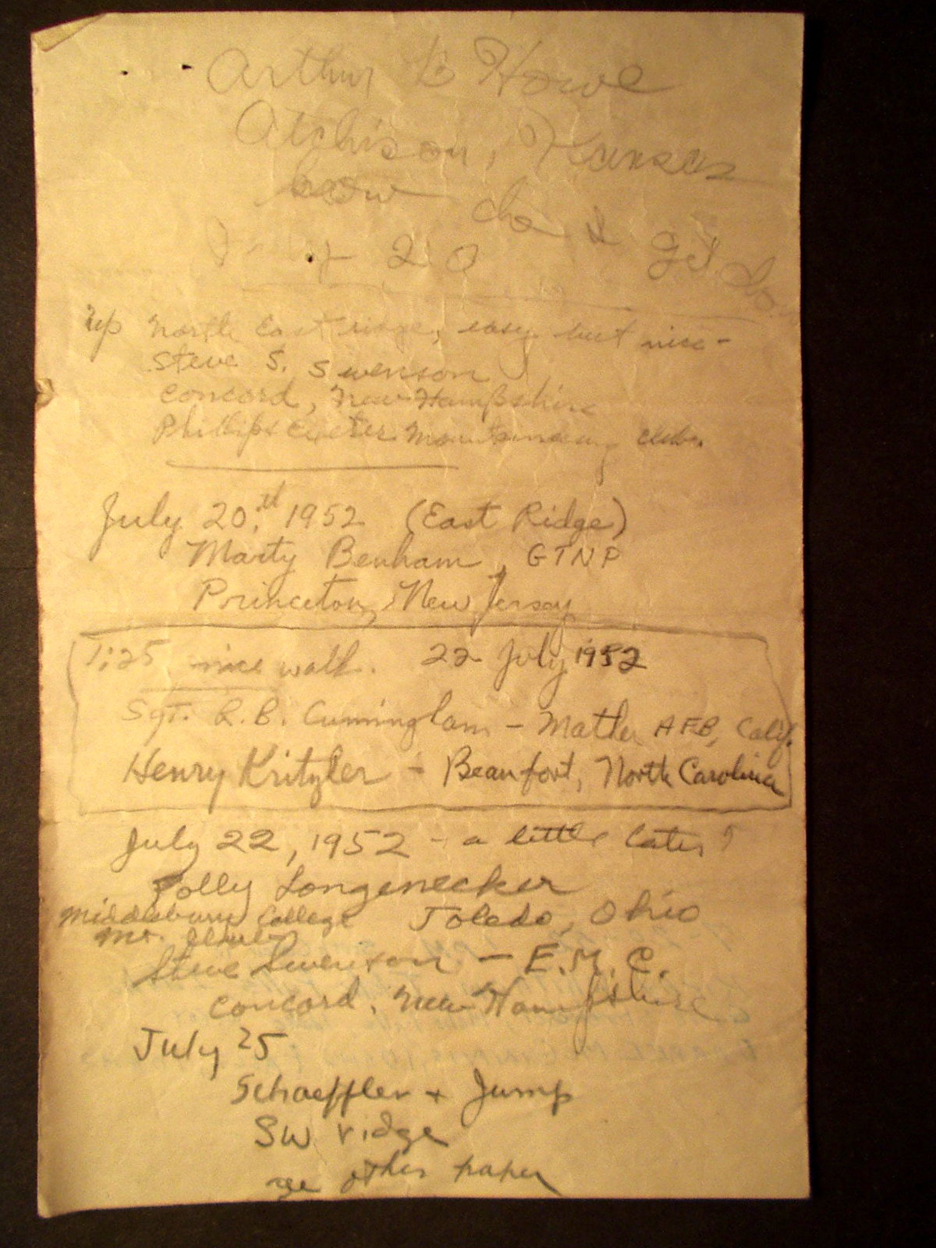 Arthur B Howe
Atchison, Kansas
July 20
up North East ridge, easy but nice -
Steve S. Swenson
Concord, New Hampshire
Phillips Exeter Mountaineering club.
July 20.th 1952 (East Ridge)
Marty Benham, GTNP
Princeton, New Jersey
1:25 nice walk. 22 July 1952
Sgt. R.B. Cuminglam - Mather AFB, Calif.
Henry Kritzler - Beaufort, North Carolina
July 22, 1952 - a little later
Polly Longenecker
Middlebury College Toledo, Ohio
Mt. Club
Steve Swenson - E.M.C.
Concord, New Hampshire
July 25
Schaeffler + Jump
SW ridge
see other paper